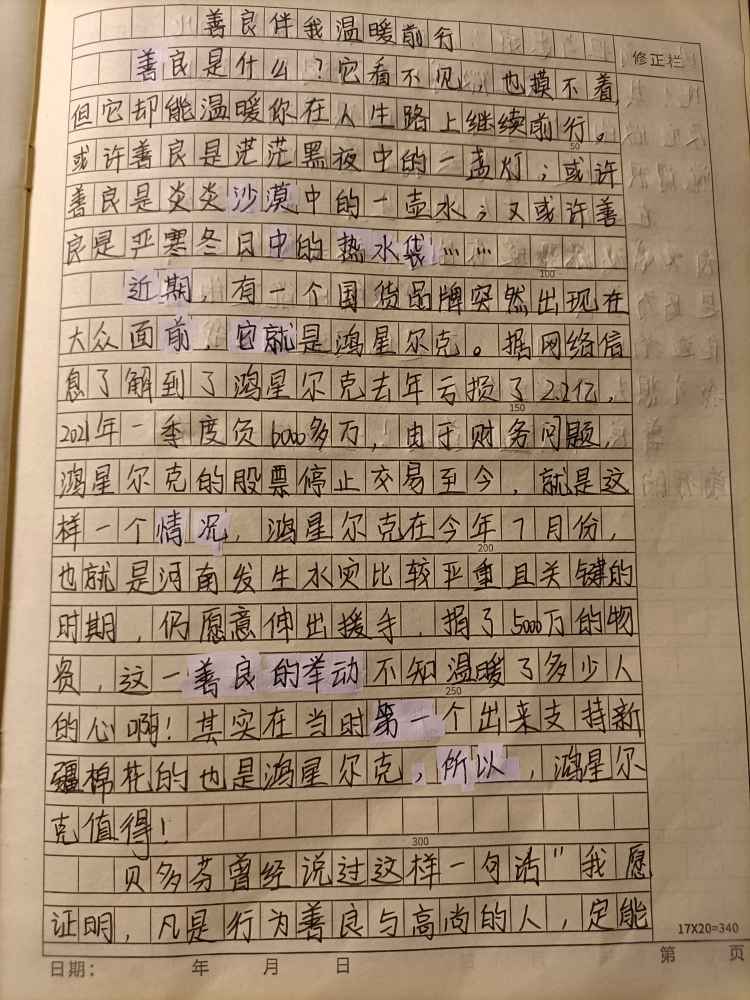 善良伴我温暖前行
修正栏
善良是什么？它看不见，也摸不着，
但它却能温暖你在人生路上继续前行。
50
或许善良是茫茫黑夜中的一盏灯；或许
善良是炎炎沙漠中的一壶水；又或许善
良是严寒冬日中的热水袋……
100
近期，有一个国货品牌突然出现在
大众面前，它就是鸿星尔克。据网络信
息了解到了鸿星尔克去年亏损了2.2亿，
150
2021年一季度负6000多万，由于财务问题，
鸿星尔克的股票停止交易至今，就是这
样一个情况，鸿星尔克在今年7月份，
200
也就是河南发生水灾比较严重且关键的
时期，仍愿意伸出援手，捐了5000万的物
资，这一善良的举动不知温暖了多少人
250
的心啊！其实在当时第一个出来支持新
疆棉花的也是鸿星尔克，所以，鸿星尔
克值得！
300
贝多芬曾经说过这样一句话"我愿
证明，凡是行为善良与高尚的人，定能
17X20=340
日期： 年 月 日 第 页